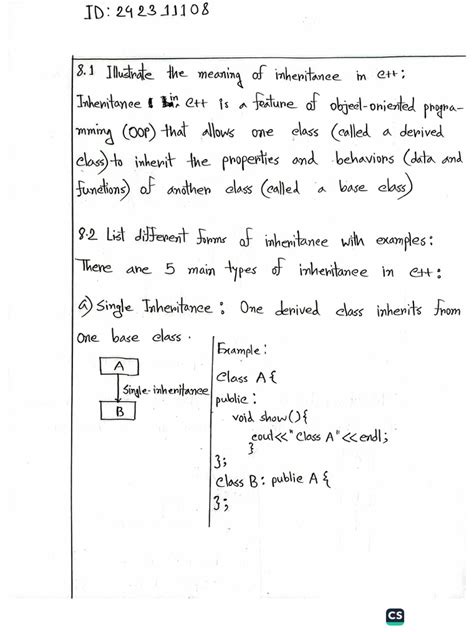 ID: 242311108
8.1 Illustrate the meaning of inheritance in c++:
Inheritance in c++ is a feature of object-oriented progra-
mming (OOP) that allows one class (called a derived
class) to inherit the properties and behaviors (data and
functions) of another class (called a base class)
8.2 List different forms of inheritance with examples:
There are 5 main types of inheritance in c++:
a) Single Inheritance: One derived class inherits from
one base class.
A
Single-inheritance
B
Example:
Class A{
public:
void show(){
cout<<"Class A"<<endl;
}
};
Class B: public A{
};
CS